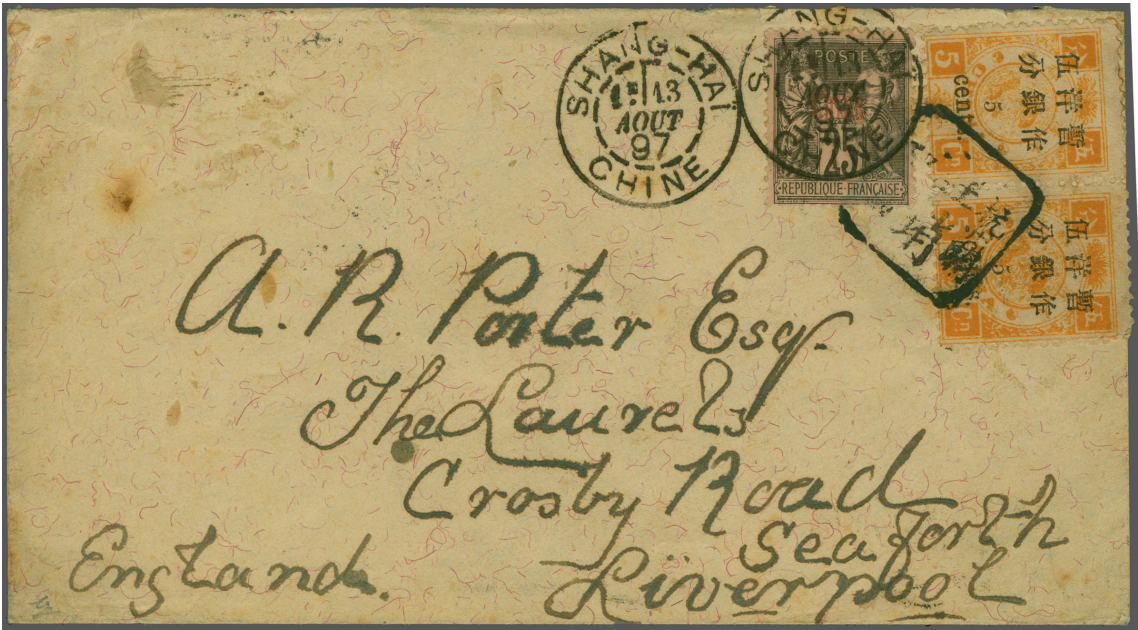 SHANG-HAÏ
1E 13
AOUT
97
CHINE
SHANG-HAI
AOUT
CHINE
POSTE
25
REPUBLIQUE FRANÇAISE
5
cents
5
伍分
洋銀
暫作
伍分
洋銀
暫作
5
A. R. Porter Esq.
The Laurels
Crosby Road
Seaforth
Liverpool
England.